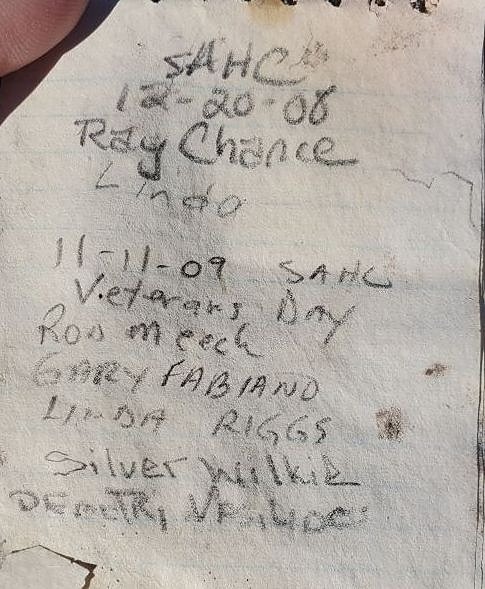 SAHC
12-20-08
Ray Chance
Lindo
11-11-09 SAHC
Veterans Day
Ron Meech
GARY FABIANO
LINDA RIGGS
Silver Wilkie
DEMITRI